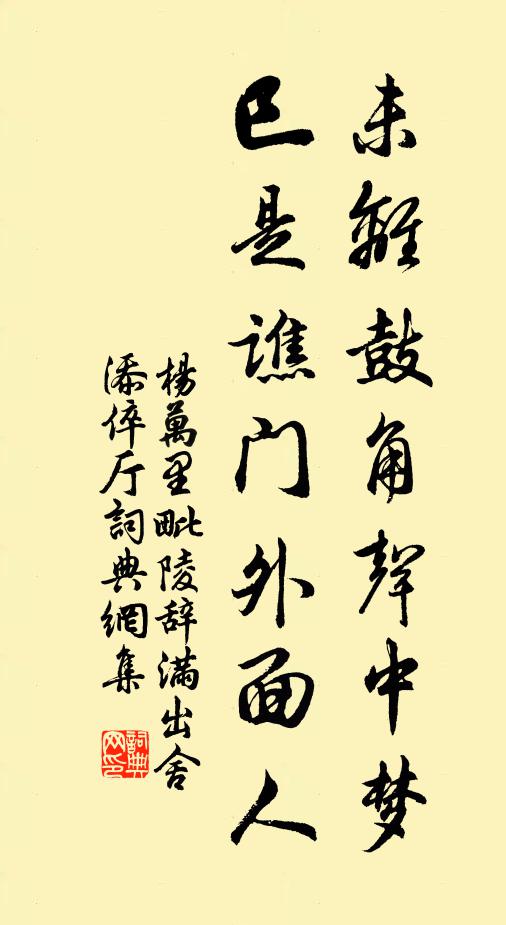 未離鼓角聲中梦
已是譙门外面人
楊萬里毗陵辞满出舍
添倅厅詞典網集
詞典网印